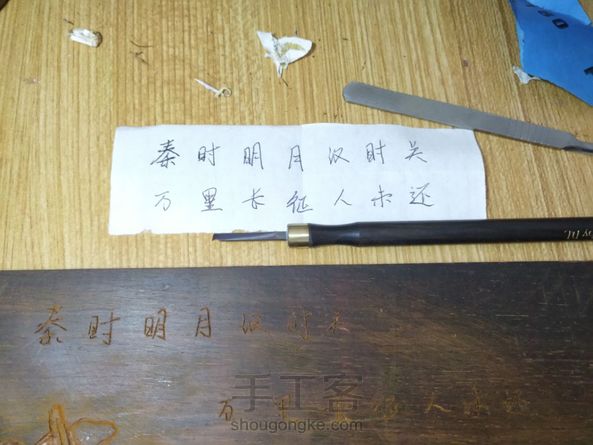 秦时明月汉时关
万里长征人未还
秦时明月汉时关
手工客
万里长征人未还
shougongke.com